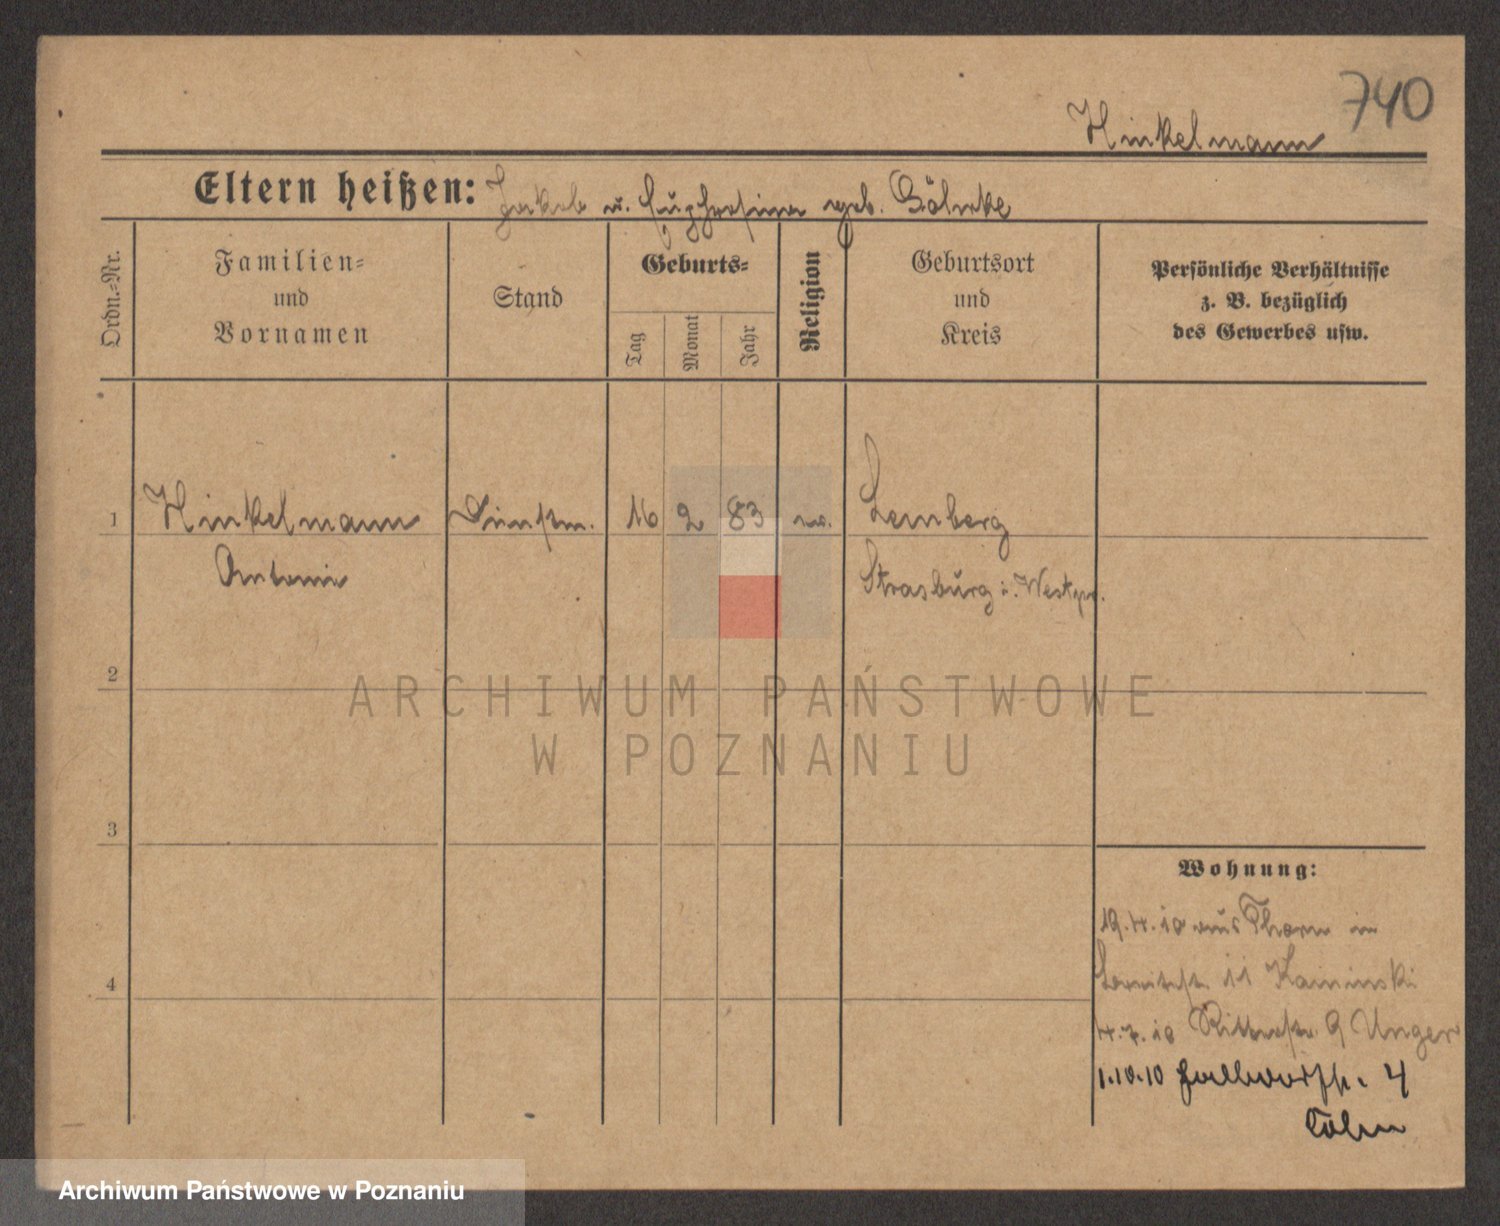 740
Hinkelmann
Eltern heißen: Jakob u. geb.
Ordn.=Nr.
Familien=
und
Vornamen
Stand
Geburts=
Tag
Monat
Jahr
Religion
Geburtsort
und
Kreis
Persönliche Verhältnisse
z. B. bezüglich
des Gewerbes usw.
1 Hinkelmann Dienstm. 16 2 83 Lemberg
Antonie Strasburg i. Westpr.
2
ARCHIWUM PAŃSTWOWE
W POZNANIU
3
Wohnung:
19.4.10 aus Thorn in
11 Kaminski
4.7.10 Ritterstr. 9 Unger
4
1.10.10 4
Cöhn
Archiwum Państwowe w Poznaniu